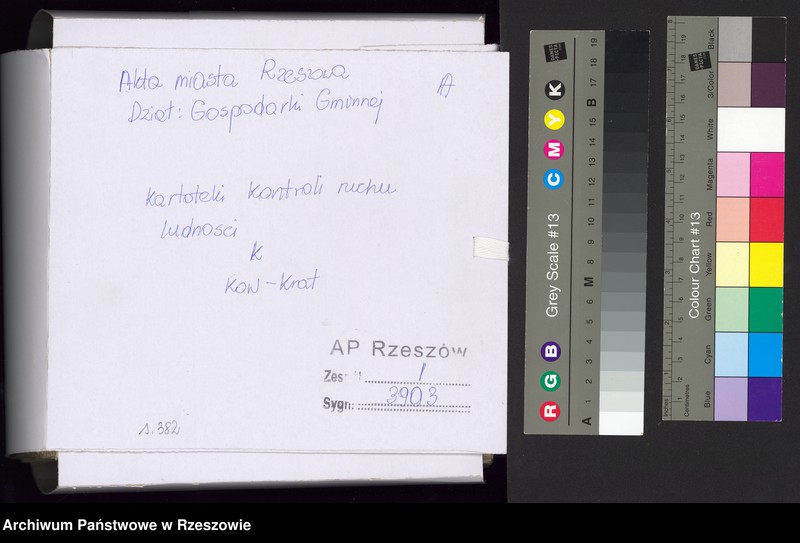 Akta miasta Rzeszowa A
Dział: Gospodarki Gminnej
Kartoteki kontroli ruchu
ludności
K
Kow - Krat
AP Rzeszów
Zesp. 1
Sygn: 3903
s. 382
Grey Scale #13
R G B C M Y K
A 1 2 3 4 5 6 M 8 9 10 11 12 13 14 15 B 17 18 19
Colour Chart #13
Blue Cyan Green Yellow Red Magenta White 3/Color Black
Inches
Centimetres
Archiwum Państwowe w Rzeszowie